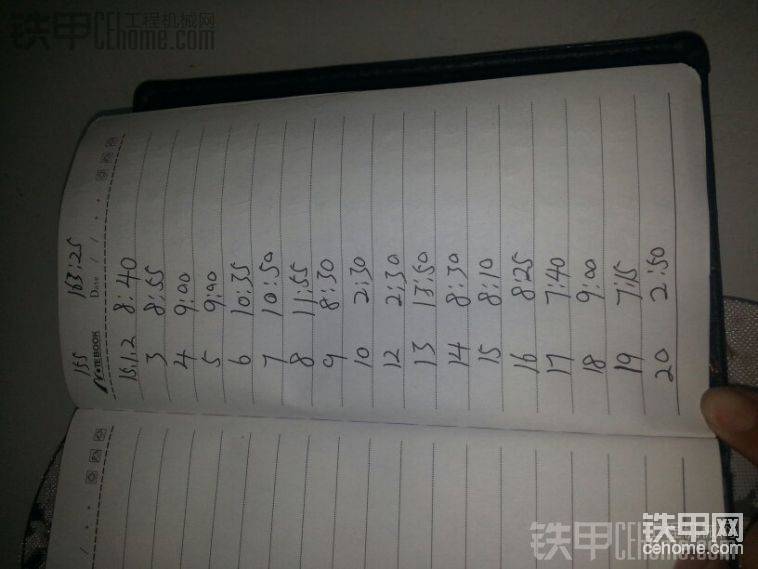 铁甲CE工程机械网
home.com
155 163:25
NOTEBOOK Date / /
15.1.2 8:40
3 8:55
4 9:00
5 9:00
6 10:35
7 10:50
8 11:55
9 8:30
10 2:30
12 2:30
13 13:50
14 8:30
15 8:10
16 8:25
17 7:40
18 9:00
19 7:15
20 2:50
铁甲CE
home.com
铁甲网
cehome.com